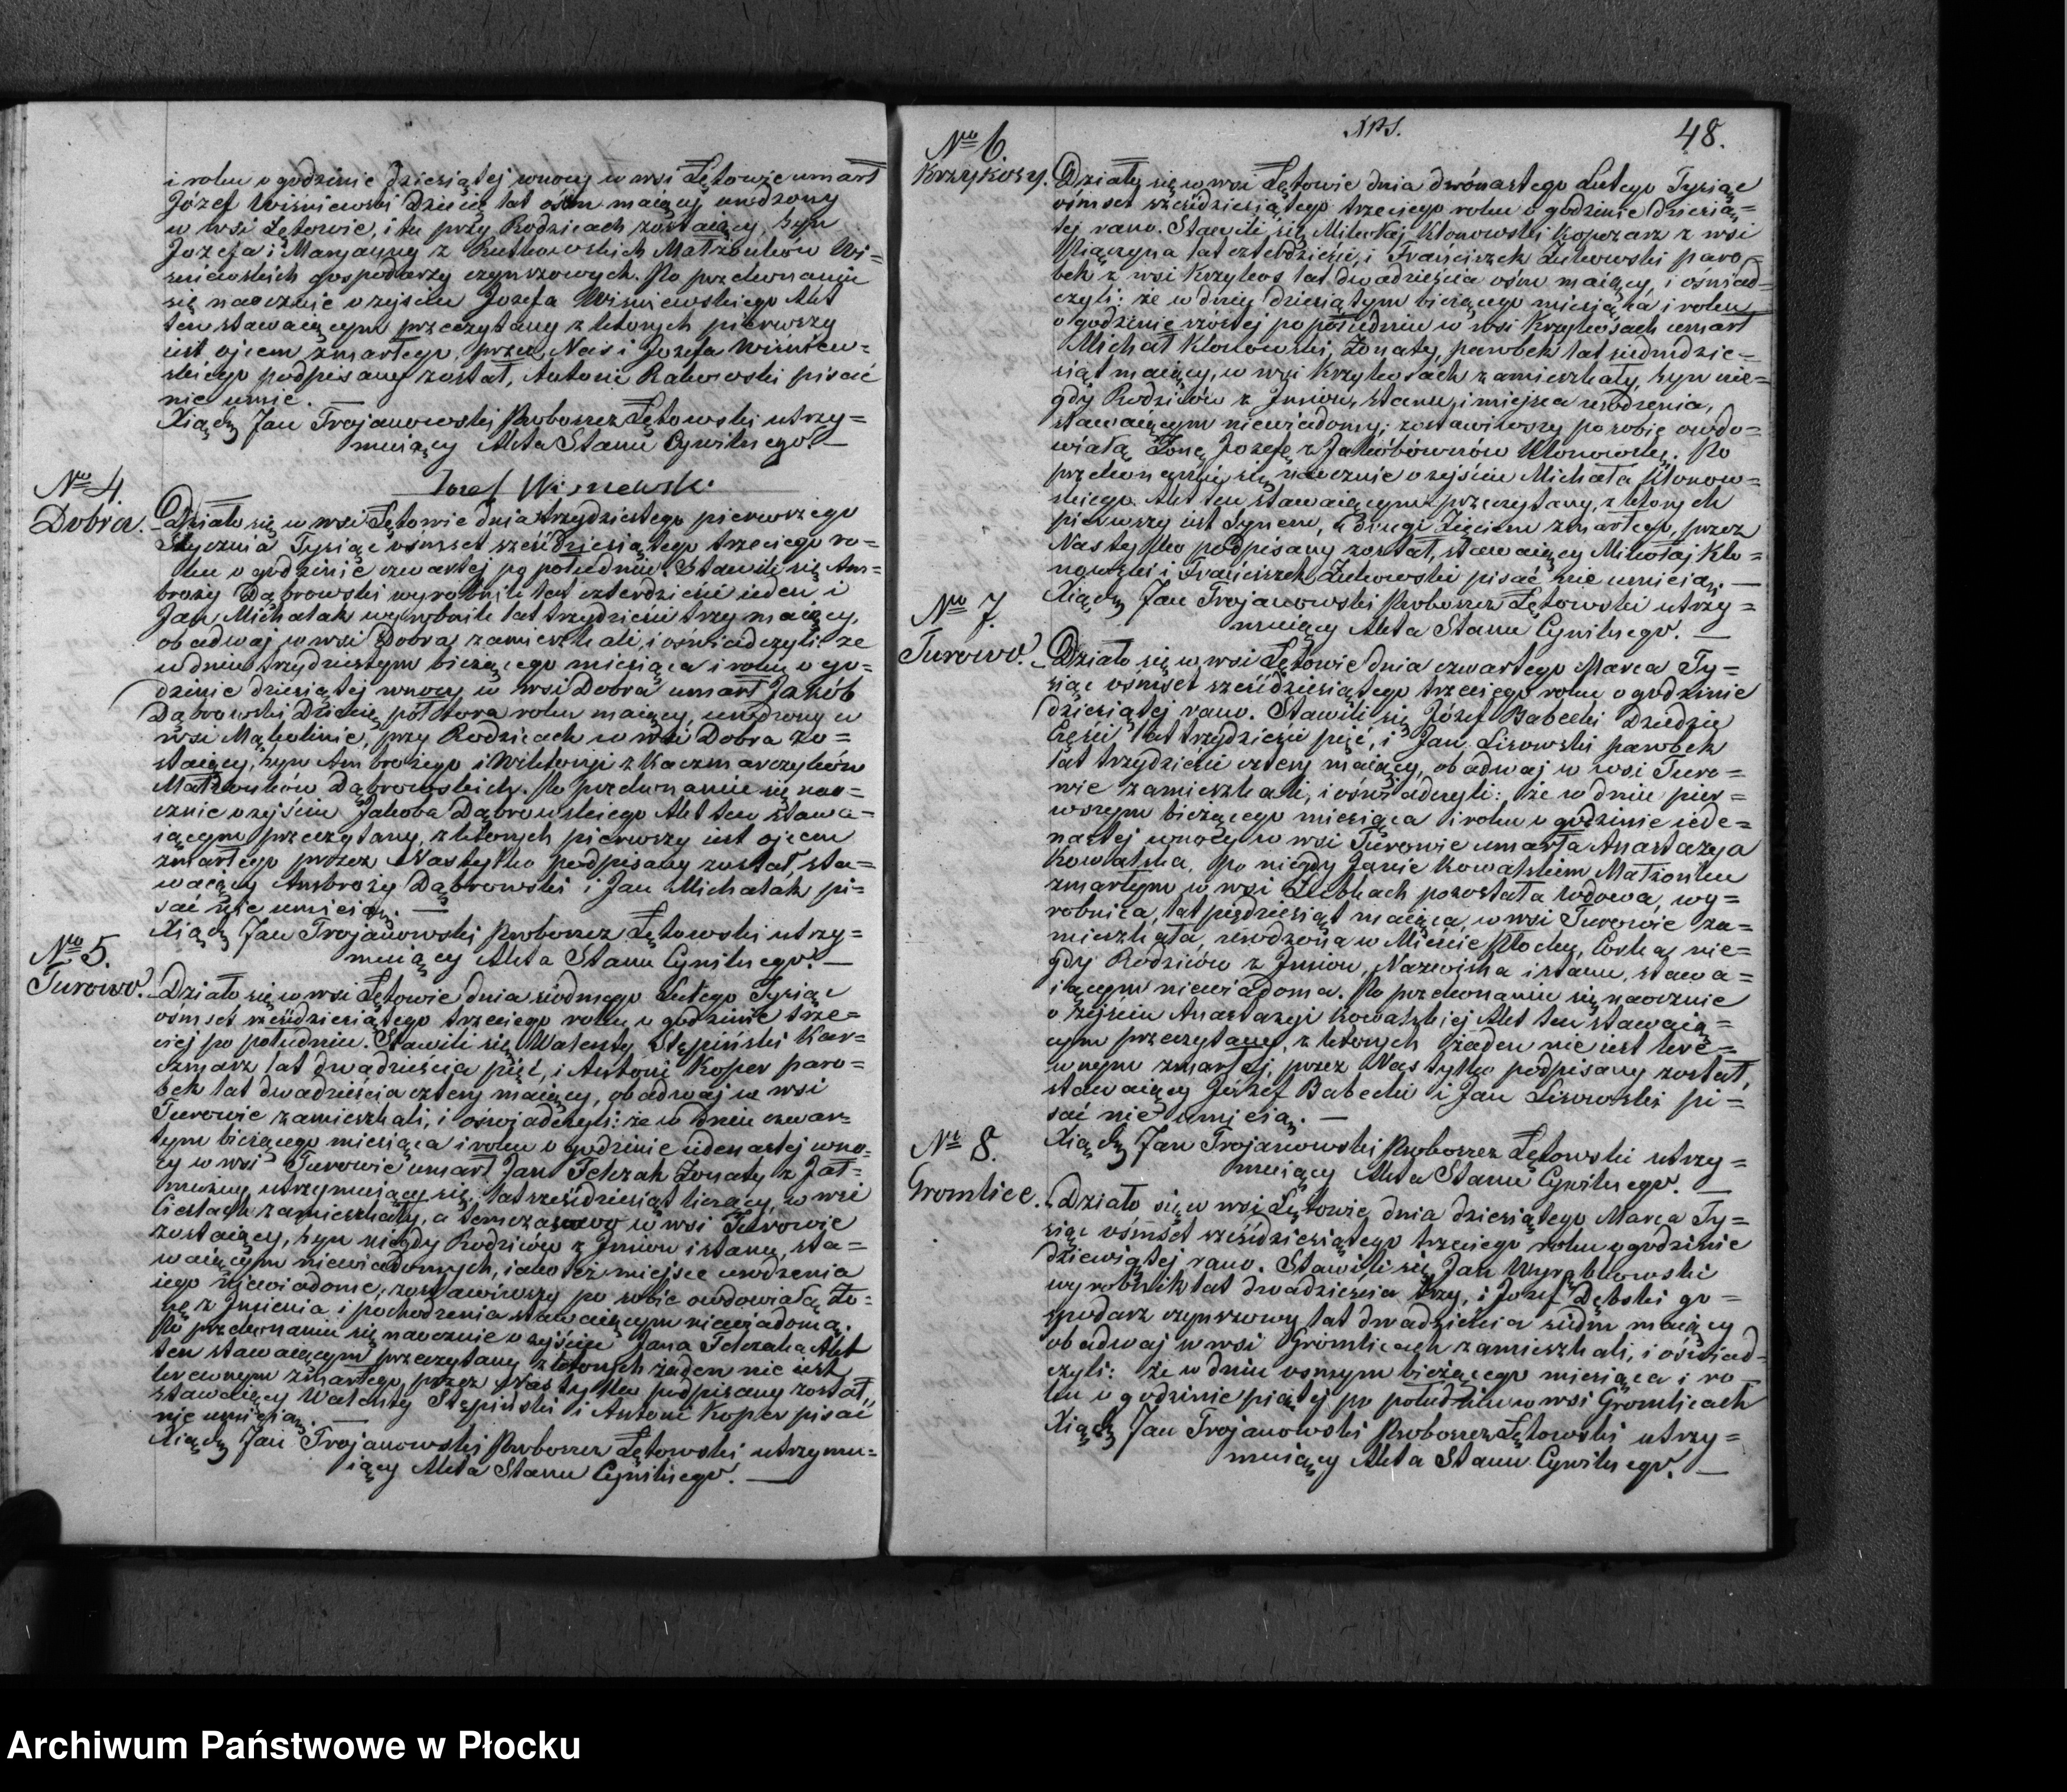 i roku o godzinie dziesiątej wnocy w wsi Łętowie umarł
Józef Wiśniewski Dziecię lat ośm maiący urodzony
w wsi Łętowie, i tu przy Rodzicach zostaiący, syn
Jozefa i Maryanny z Rutkowskich Małżonków Wi=
śniewskich gospodarzy czynszowych. Po przekonaniu
się naocznie o zejściu Jozefa Wiśniewskiego Akt
ten stawaiącym przeczytany z których pierwszy
iest ojcem zmarłego, przez Nas i Jozefa Wiśniew=
skiego podpisany został, Antoni Rakowski pisać
nie umie.
Xiądz Jan Trojanowski Proboszcz Łętowski utrzy=
muiący Akta Stanu Cywilnego
Jozef Wisnewski
No 4.
Dobra.
Działo się w wsi Łętowie dnia trzydziestego pierwszego
Stycznia Tysiąc ośmset sześćdziesiątego trzeciego ro=
ku o godzinie czwartej po południu. Stawili się Am=
broży Dąbrowski wyrobnik lat czterdzieści ieden i
Jan Michalak wyrobnik lat trzydzieści trzy maiący,
obadwaj w wsi Dobra zamieszkali, i oświadczyli: że
w dniu trzydziestym bieżącego miesiąca i roku o go=
dzinie dziesiątej wnocy w wsi Dobra umarł Jakób
Dąbrowski Dziecię półtora roku maiący, urodzony w
wsi Mąkolinie, przy Rodzicach w wsi Dobra zo=
staiący, syn Ambrożego i Wiktoryi z Kaczmarczyków
Małżonków Dąbrowskich. Po przekonaniu się nao=
cznie o zejściu Jakóba Dąbrowskiego Akt ten stawa=
iącym przeczytany, z których pierwszy iest ojcem
zmarłego przez Nas tylko podpisany został, sta=
waiący Ambroży Dąbrowski i Jan Michalak pi=
sać nie umieią.
Xiądz Jan Trojanowski Proboszcz Łętowski utrzy=
muiący Akta Stanu Cywilnego.
No 5.
Turowo.
Działo się w wsi Łętowie dnia siódmego Lutego Tysiąc
ośmset sześćdziesiątego trzeciego roku o godzinie trze=
ciej po południu. Stawili się Walenty Stępiński Kar=
czmarz lat dwadzieścia pięć, i Antoni Koper paro=
bek lat dwadzieścia cztery maiący, obadwaj w wsi
Turowie zamieszkali, i oświadczyli: że w dniu czwar=
tym bieżącego miesiąca i roku o godzinie iedenastej wno=
cy w wsi Turowie umarł Jan Felczak Żonaty z Jał=
mużny utrzymujący się, lat sześćdziesiąt liczący, w wsi
Ciestach zamieszkały, a temczasowo w wsi Turowie
zostaiący, syn niegdy Rodziców z Jmion i stanu, sta=
waiącym niewiadomych, iako też miejsce urodzenia
iego niewiadome, zostawiwszy po sobie owdowiałą Żo=
nę z Jmienia i pochodzenia stawaiącym niewiadomą.
Po przekonaniu się naocznie o zejściu Jana Felczaka Akt
ten stawaiącym przeczytany z których żaden nie iest
krewnym zmarłego, przez Nas tylko podpisany został,
stawaiący Walenty Stępiński i Antoni Koper pisać
nie umieią.
Xiądz Jan Trojanowski Proboszcz Łętowski utrzymu=
iący Akta Stanu Cywilnego.
48.
No 6.
Krzykosy.
Działo się w wsi Łętowie dnia dwónastego Lutego Tysiąc
ośmset sześćdziesiątego trzeciego roku o godzinie dziesią=
tej rano. Stawili się Mikołaj Kłonowski Kopczarz z wsi
lat czterdzieści, i Franciszek Żukowski paro=
bek z wsi Krzykos lat dwadzieścia ośm maiący, i oświad=
czyli: że w dniu dziesiątym bieżącego miesiąca i roku
o godzinie szóstej po południu w wsi Krzykosach umarł
Michał Kłonowski, Żonaty, parobek lat siedmdzie=
siąt maiący, w wsi Krzykosach zamieszkały, syn nie=
gdy Rodziców z Jmion, stanu, i miejsca urodzenia,
stawaiącym niewiadomy; zostawiwszy po sobie owdo=
wiałą Żonę Jozefę z Jakóbównów Kłonowską. Po
przekonaniu się naocznie o zejściu Michała Kłonow=
skiego Akt ten stawaiącym przeczytany, z których
pierwszy iest Synem, a drugi Zięciem zmarłego, przez
Nas tylko podpisany został, stawaiący Mikołaj Kło=
nowski i Franciszek Żukowski pisać nie umieią.
Xiądz Jan Trojanowski Proboszcz Łętowski utrzy=
muiący Akta Stanu Cywilnego.
No 7.
Turowo.
Działo się w wsi Łętowie dnia czwartego Marca Ty=
siąc ośmset sześćdziesiątego trzeciego roku o godzinie
dziesiątej rano. Stawili się Józef Babecki Dziedzic
Części lat trzydzieści pięć, i Jan Lisowski parobek
lat trzydzieści cztery maiący, obadwaj w wsi Turo=
wie zamieszkali, i oświadczyli: że w dniu pier=
wszym bieżącego miesiąca i roku o godzinie iede=
nastej wnocy w wsi Turowie umarła Anastazya
Kowalska, po niegdy Janie Kowalskim Małżonku
zmarłym w wsi Żebkach pozostała wdowa, wy=
robnica, lat pięćdziesiąt maiąca, w wsi Turowie za=
mieszkała, urodzona w Mieście Płocku, Córka nie=
gdy Rodziców z Jmion, Nazwiska i stanu, stawa=
iącym niewiadoma. Po przekonaniu się naocznie
o zejściu Anastazyi Kowalskiej Akt ten stawaią=
cym przeczytany, z których żaden nie iest kre=
wnym zmarłej, przez Nas tylko podpisany został,
stawaiący Józef Babecki i Jan Lisowski pi=
sać nie umieią.
Xiądz Jan Trojanowski Proboszcz Łętowski utrzy=
muiący Akta Stanu Cywilnego.
No 8.
Gromlice.
Działo się w wsi Łętowie dnia dziesiątego Marca Ty=
siąc ośmset sześćdziesiątego trzeciego roku o godzinie
dziewiątej rano. Stawili się Jan Wyrębkowski
wyrobnik lat dwadzieścia trzy, i Jozef Dębski go=
spodarz czynszowy lat dwadzieścia siedm maiący
obadwaj w wsi Gromlicach zamieszkali, i oświad=
czyli: że w dniu ósmym bieżącego miesiąca i ro=
ku o godzinie piątej po południu w wsi Gromlicach
Xiądz Jan Trojanowski Proboszcz Łętowski utrzy=
muiący Akta Stanu Cywilnego.
Archiwum Państwowe w Płocku